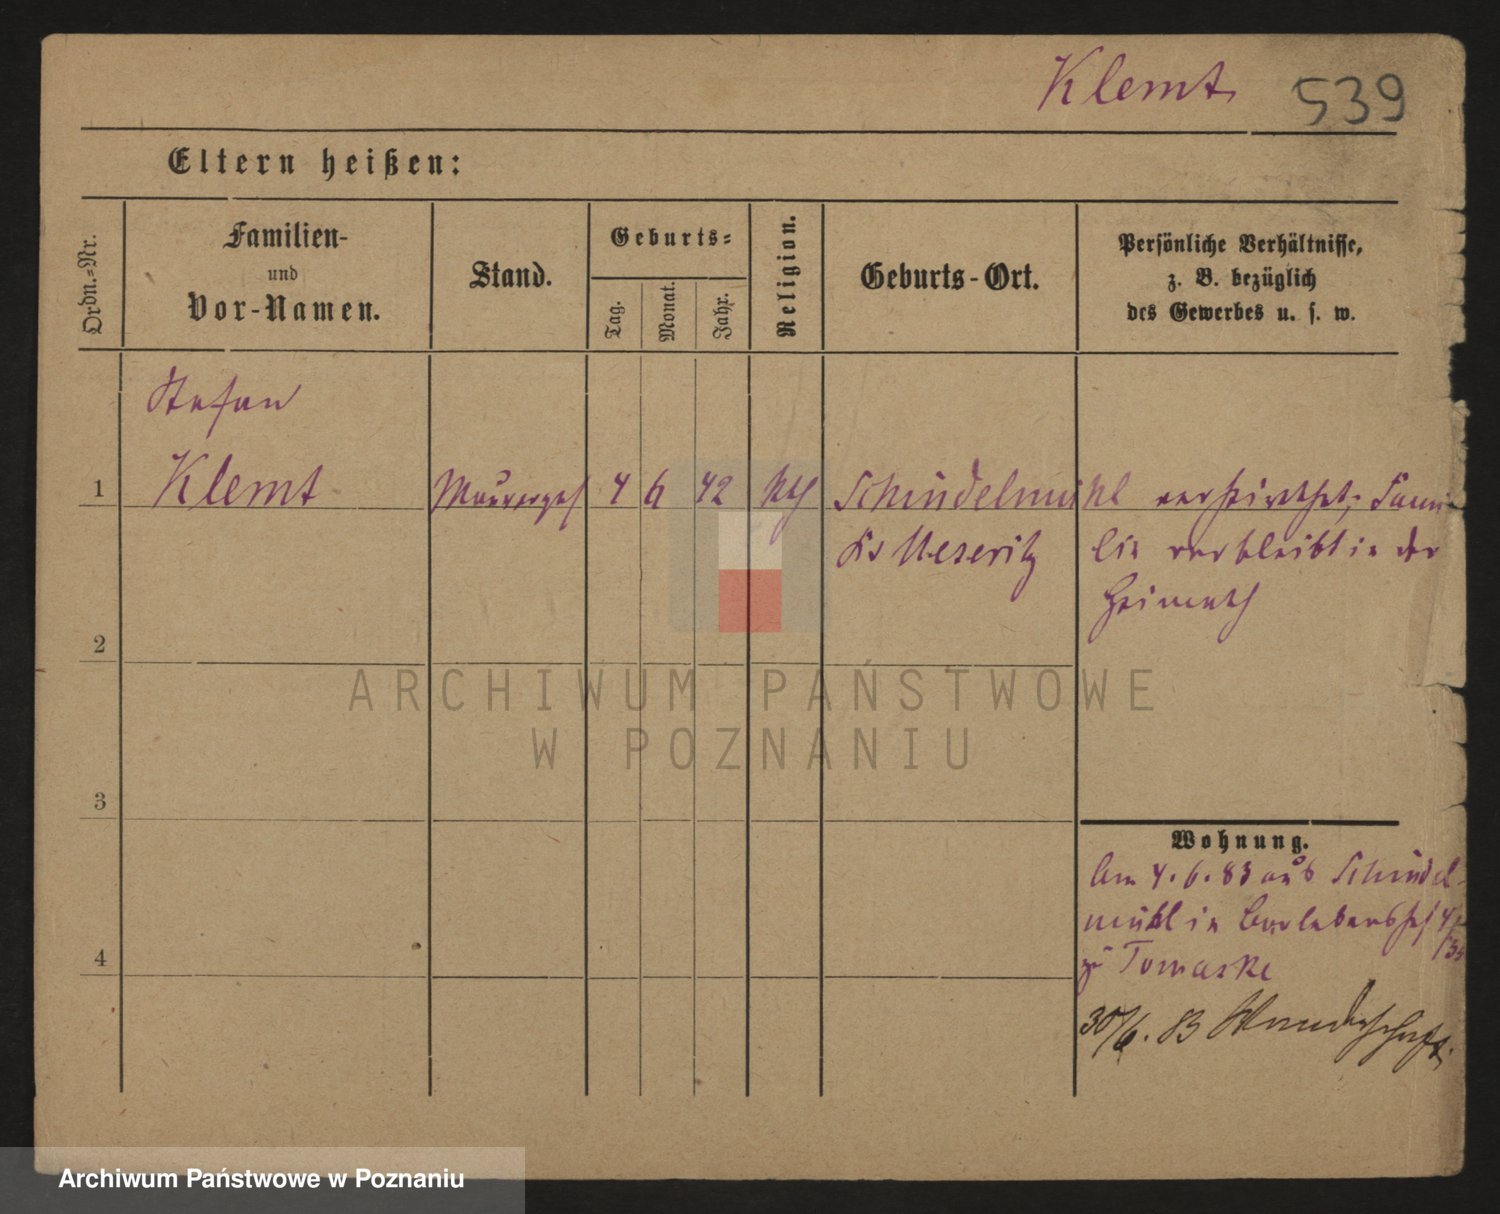 Klemt 539
Eltern heißen:
Ordn.-Nr.
Familien-
und
Vor-Namen.
Stand.
Geburts-
Tag.
Monat.
Jahr.
Religion.
Geburts-Ort.
Persönliche Verhältnisse,
z. B. bezüglich
des Gewerbes u. s. w.
Stefan
1 Klemt Maurerges 4 6 42 kth Schindelmühl verheirathet; Fami-
Krs Meseritz lie verbleibt in der
Heimath
2
ARCHIWUM PAŃSTWOWE
W POZNANIU
3
Wohnung.
Am 4.6.83 aus Schindel-
mühl in
zu Tomaske
4
30/6. 83 Wanderschaft.
Archiwum Państwowe w Poznaniu